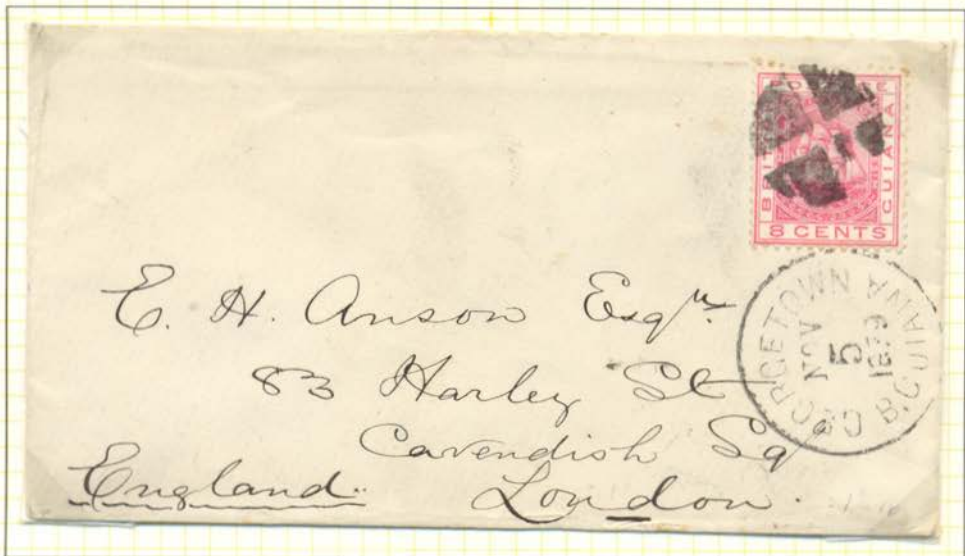 POSTAGE
BRITISH GUIANA
8 CENTS
GEORGETOWN B. GUIANA
NOV
5
1879
E. H. Anson Esqre.
83 Harley St
Cavendish Sq
London.
England